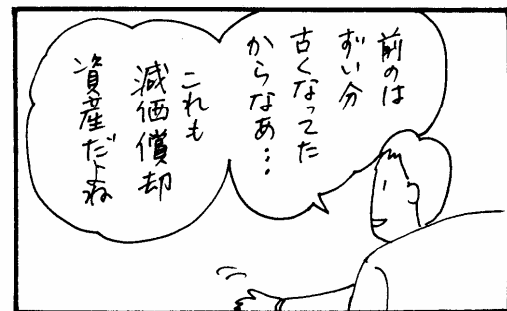 前のは
ずい分
古くなってた
からなあ…
これも
減価償却
資産だよね